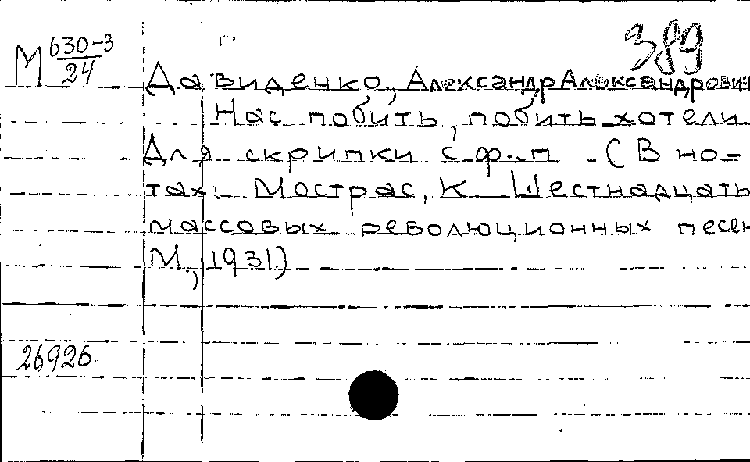 389
М 630-3/24
Давиденко, Александр Александрович
Нас побить, побить хотели
Для скрипки с ф.-п. (В но-
тах: Мострас, К. Шестнадцать
массовых революционных песен
М., 1931)
26926